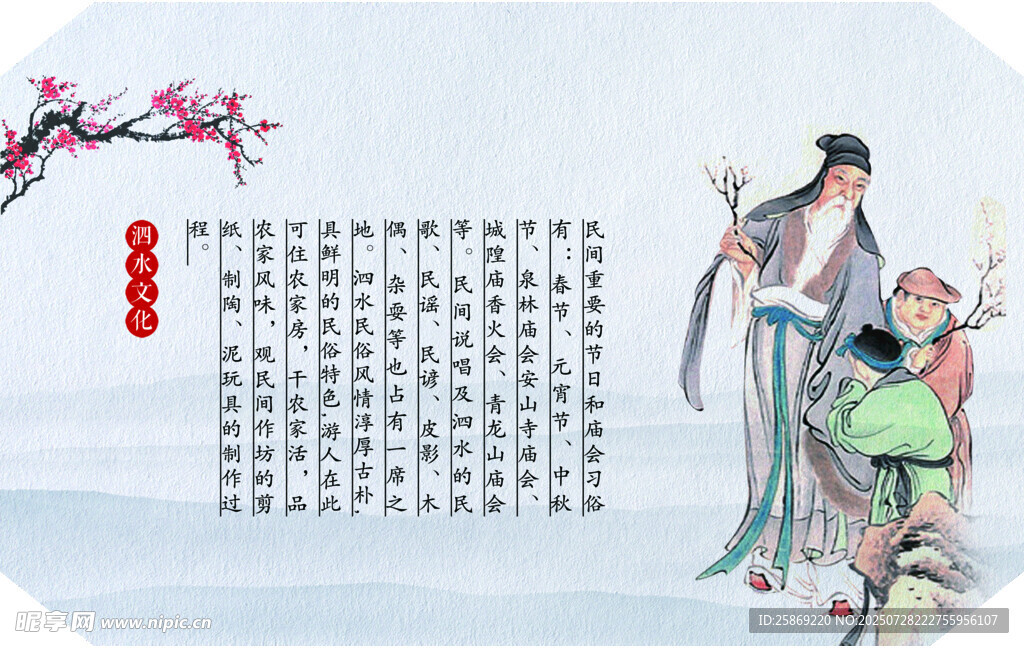 泗水文化
民间重要的节日和庙会习俗
有：春节、元宵节、中秋
节、泉林庙会安山寺庙会、
城隍庙香火会、青龙山庙会
等。民间说唱及泗水的民
歌、民谣、民谚、皮影、木
偶、杂耍等也占有一席之
地。泗水民俗风情淳厚古朴.
具鲜明的民俗特色.游人在此
可住农家房，干农家活，品
农家风味，观民间作坊的剪
纸、制陶、泥玩具的制作过
程。
昵享网 www.nipic.cn
ID:25869220 NO:20250728222755956107